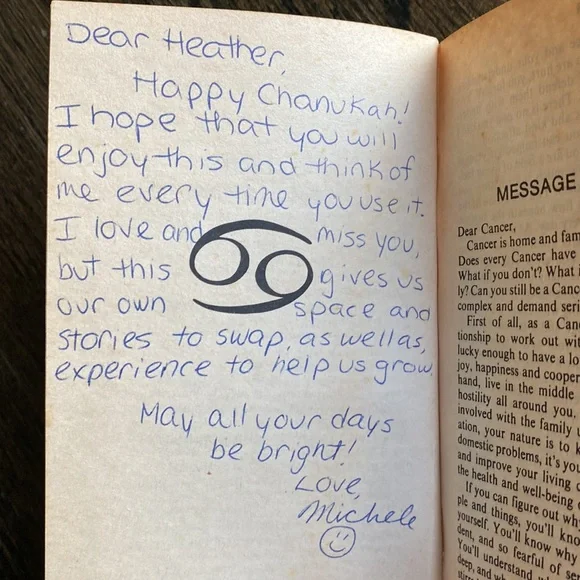 Dear Heather,
Happy Chanukah!
I hope that you will
enjoy this and think of
me every time you use it.
I love and miss you,
but this gives us
our own space and
stories to swap, as well as,
experience to help us grow.
May all your days
be bright!
Love,
Michele
MESSAGE
Dear Cancer,
Cancer is home and fam
Does every Cancer have
What if you don't? What i
ly? Can you still be a Canc
complex and demand seri
First of all, as a Can
tionship to work out wit
lucky enough to have a lo
joy, happiness and cooper
hand, live in the middle
hostility all around you.
involved with the family u
ation, your nature is to k
domestic problems, it's you
and improve your living c
the health and well-being o
If you can figure out wh
ple and things, you'll kno
yourself. You'll know why
dent, and so fearful of se
You'll understand
deep, and